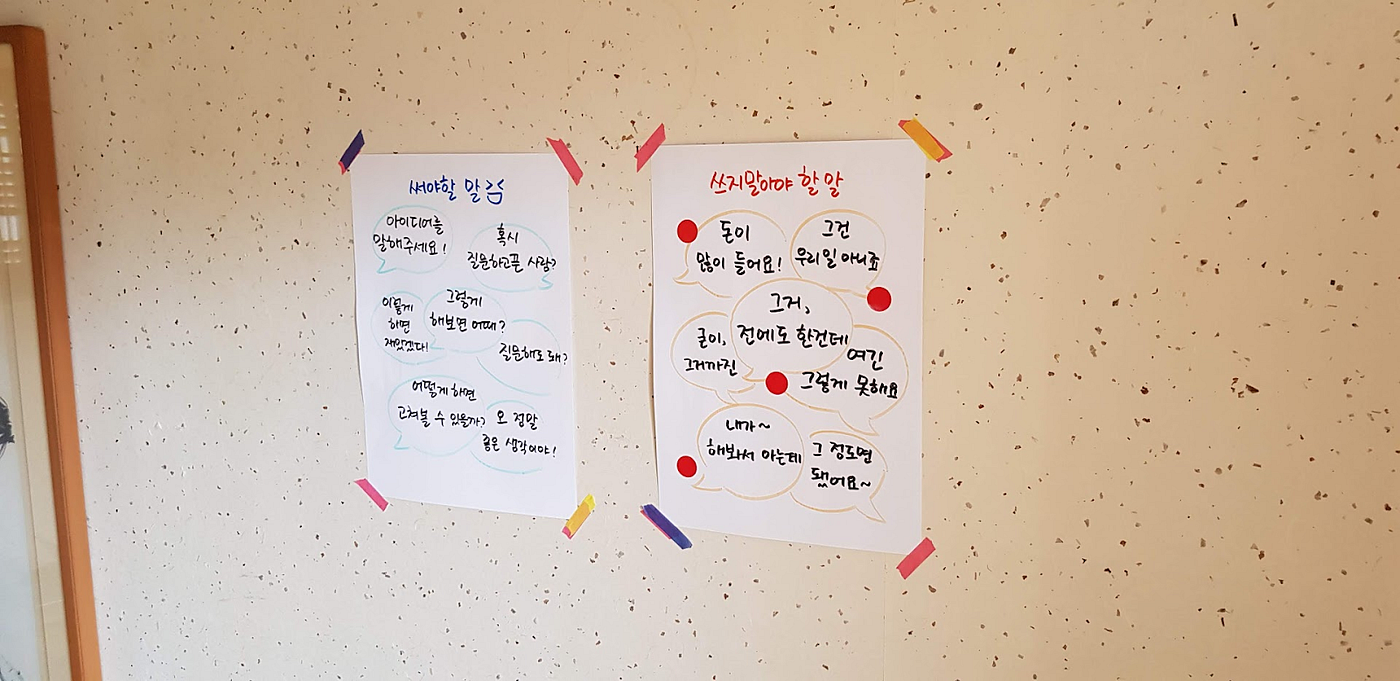 써야할 말
아이디어를
말해주세요!
혹시
질문하고픈 사람?
이렇게
하면
재밌겠다!
그렇게
해보면 어때?
질문해도 돼?
어떻게 하면
고쳐볼 수 있을까?
오 정말
좋은 생각이야!
쓰지말아야 할 말
돈이
많이 들어요!
그건
우리일 아니죠
그거,
전에도 한건데
굳이,
그거까진
여긴
그렇게 못해요
내가~
해봐서 아는데
그 정도면
됐어요~